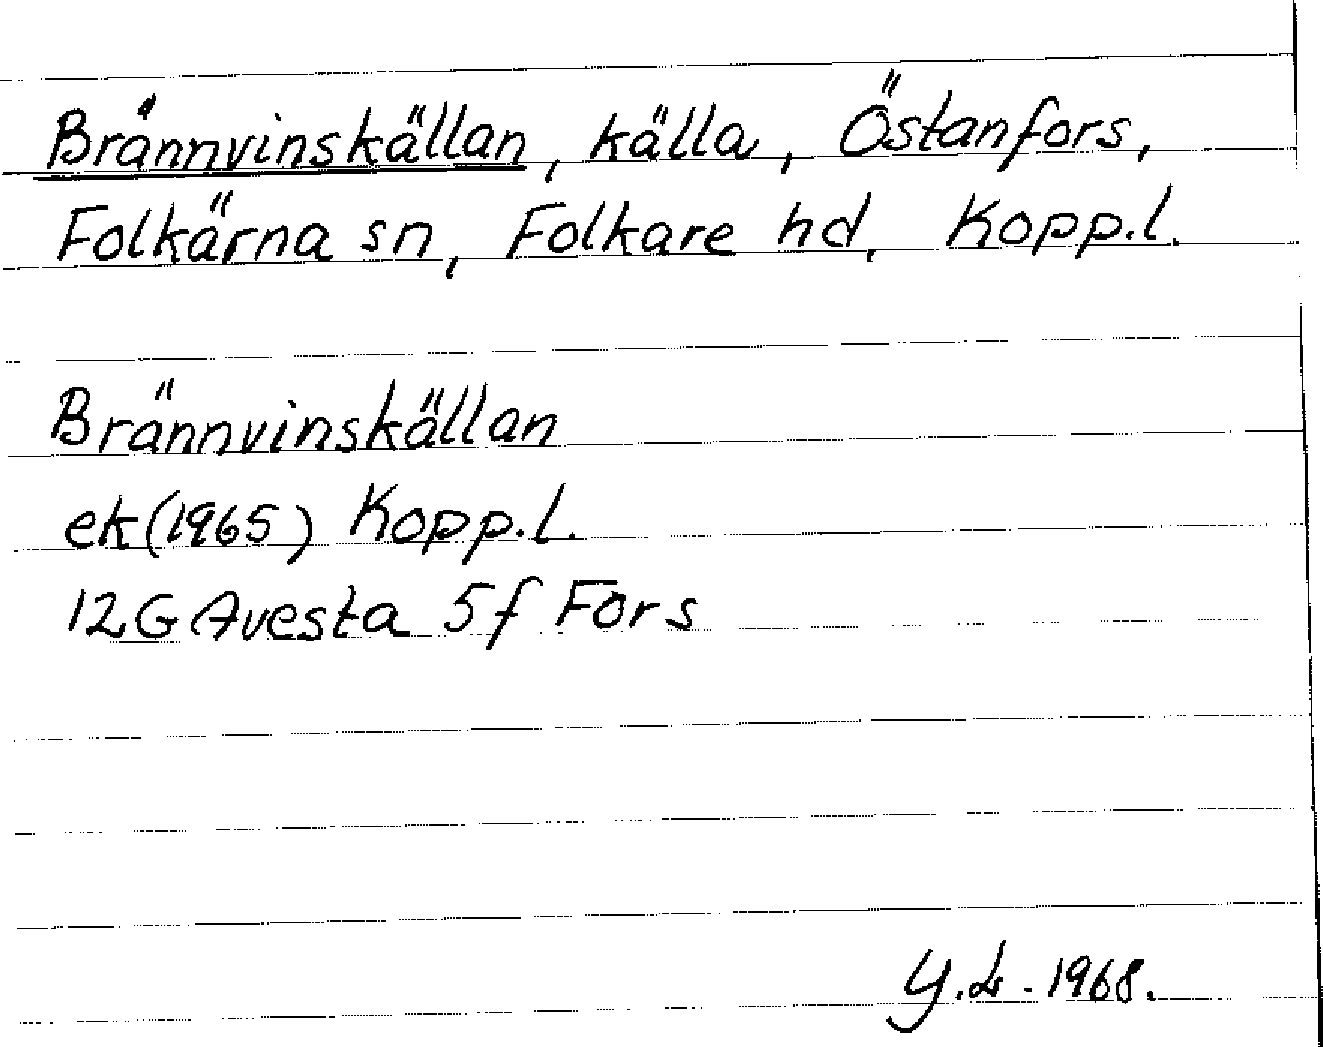 Brännvinskällan, källa, Östanfors,
Folkärna sn, Folkare hd, Kopp.l.
Brännvinskällan
ek(1965) Kopp.l.
12G Avesta 5f Fors
Y.L. 1968.